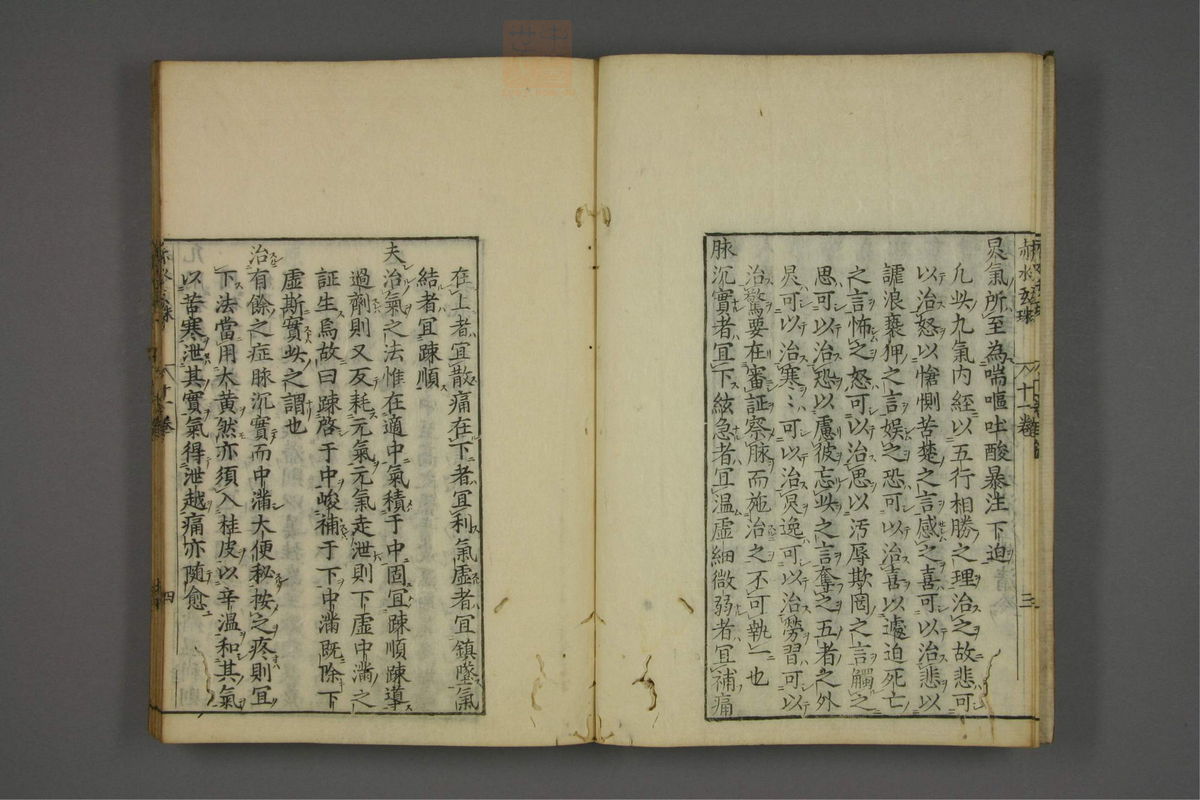 赤水玄珠 十一卷 三
炅氣所至為喘嘔吐酸暴注下迫
凢此九氣内經以五行相勝之理治之故悲可
以治怒以愴惻苦楚之言感之喜可以治悲以
謔浪䙝狎之言娛之恐可以治喜以遽迫死亡
之言怖之怒可以治思以汚辱欺罔之言觸之
思可以治恐以慮彼忘此之言奪之五者之外
炅可以治寒〻可以治炅逸可以治勞習可以
治驚要在審証察脉而施治之不可執一也
脉沉實者宜下絃急者宜温虚細微弱者宜補痛
在上者宜散痛在下者宜利氣虚者宜鎮墜氣
結者宜踈順
夫治氣之法惟在適中氣積于中固宜踈順踈導
過劑則又反耗元氣元氣走泄則下虚中滿之
証生焉故曰踈啓于中峻補于下中滿既除下
虚斯實此之謂也
治有餘之症脉沉實而中滿大便秘按之疼則宜
下法當用大黄然亦須入桂皮以辛温和其氣
以苦寒泄其實氣得泄越痛亦隨愈
十一卷 四